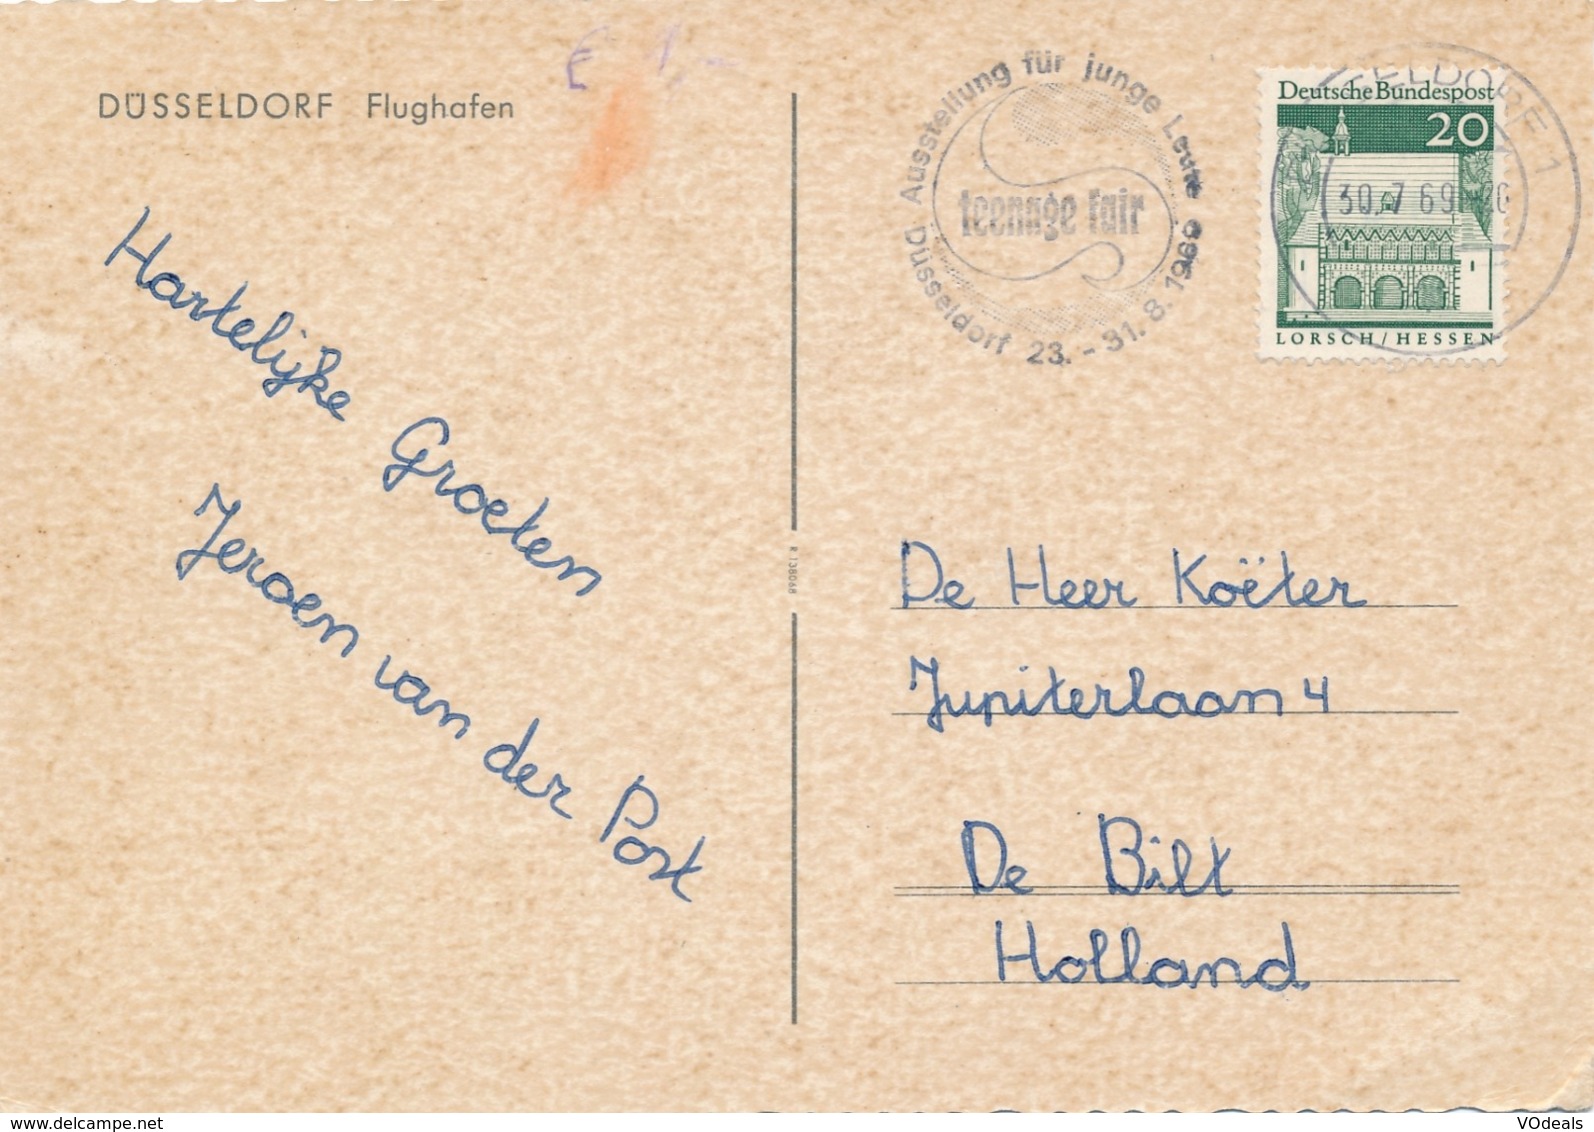 DÜSSELDORF Flughafen
€ 1,-
Hartelijke Groeten
Jeroen van der Post
R 138068
Düsseldorf Ausstellung für junge Leute 23. - 31. 8. 1969
teenage fair
Deutsche Bundespost
20
LORSCH/HESSEN
30.7 69
De Heer Koëter
Jupiterlaan 4
De Bilt
Holland
VOdeals